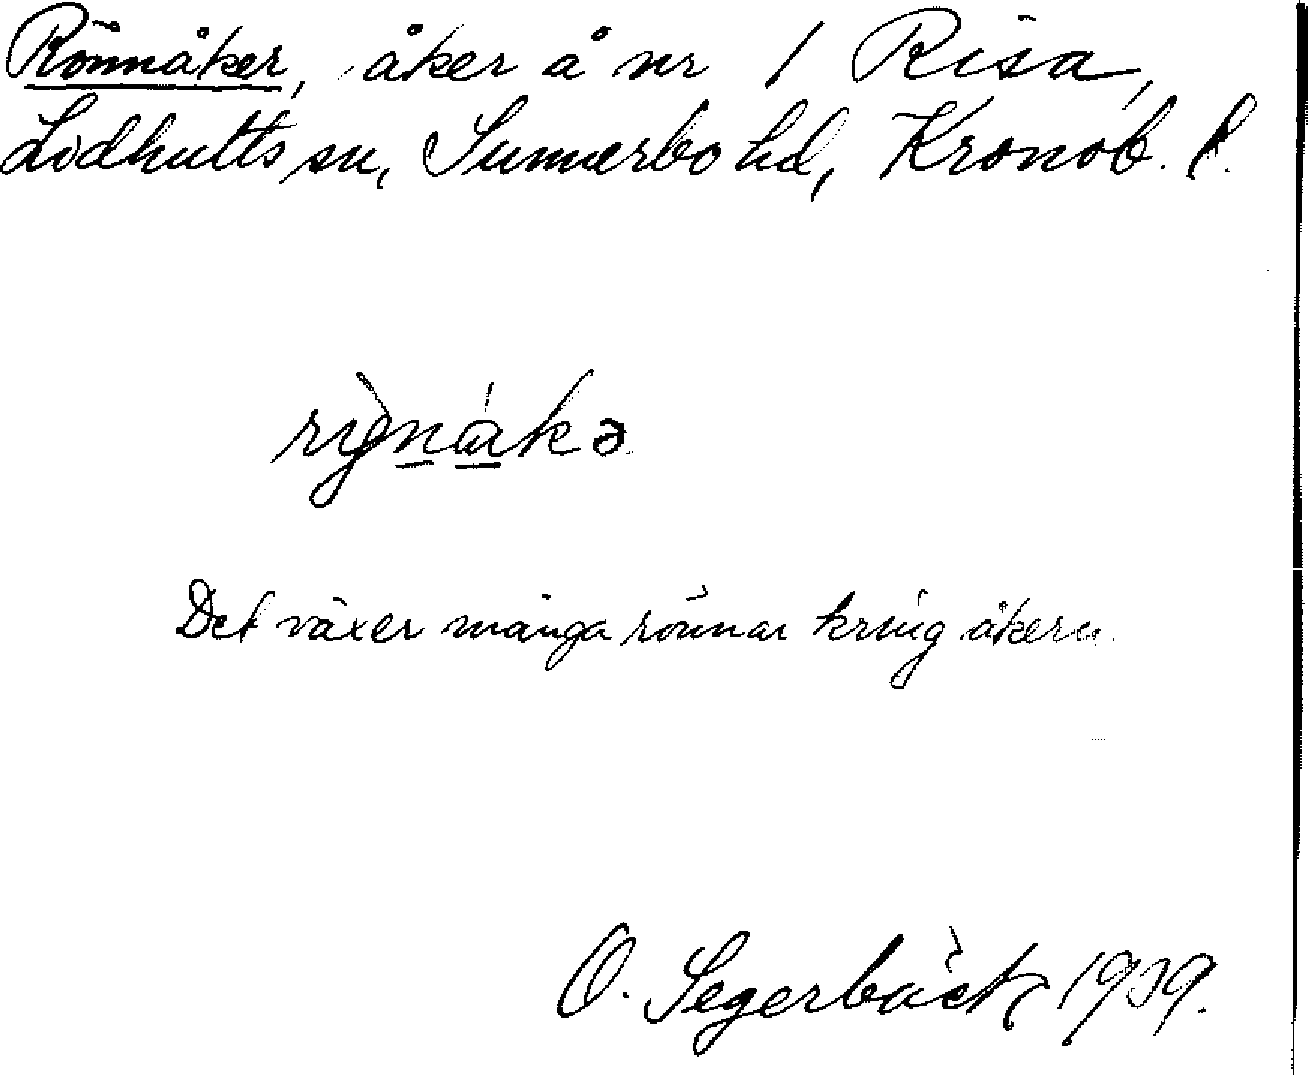 Rönnåker, åker å nr 1 Risa,
Lidhults sn, Sunnerbo hd, Kronob. l.
rỳnákə
Det växer många rönnar kring åkern.
O. Segerbäck 1939.